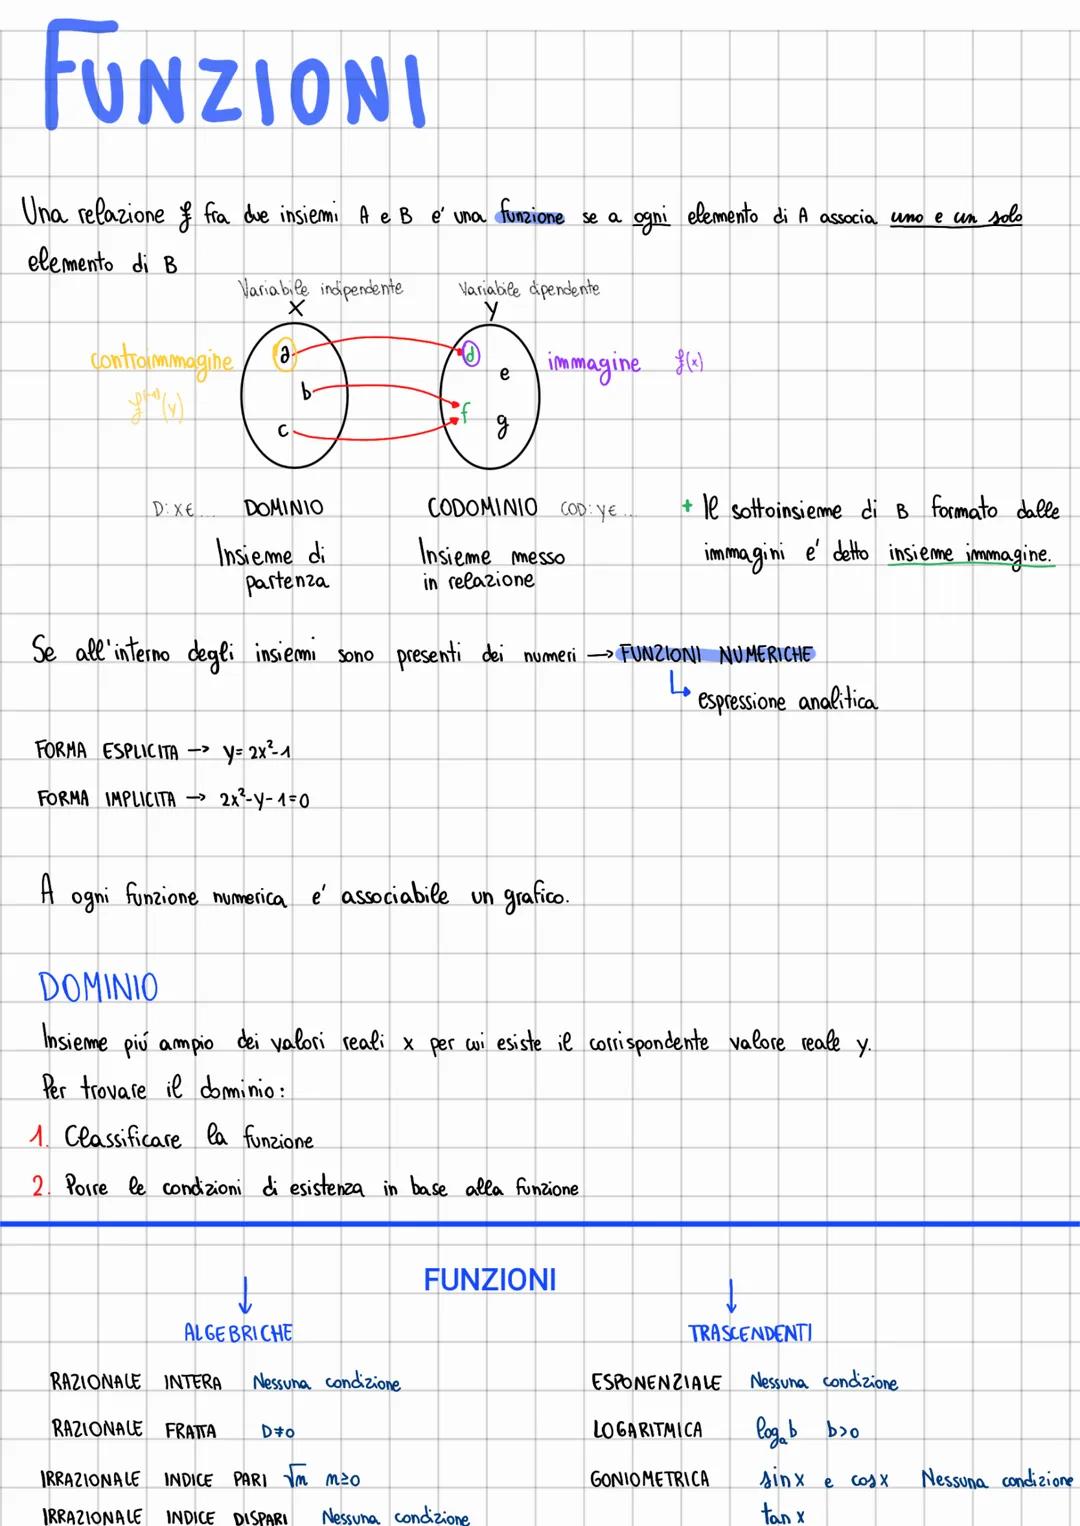 FUNZIONI
Una relazione f fra due insiemi A e B e' una funzione se a ogni elemento di A associa uno e un solo
elemento di B
Variabile indipendente Variabile dipendente
X Y
controimmagine a d immagine f(x)
f⁽⁻¹⁾(y) b e
c f g
D: X∈... DOMINIO CODOMINIO COD: Y∈... + Il sottoinsieme di B formato dalle
Insieme di Insieme messo immagini e' detto insieme immagine.
partenza in relazione
Se all'interno degli insiemi sono presenti dei numeri → FUNZIONI NUMERICHE
espressione analitica
FORMA ESPLICITA → y=2x²-1
FORMA IMPLICITA → 2x²-y-1=0
A ogni funzione numerica e' associabile un grafico.
DOMINIO
Insieme piú ampio dei valori reali x per cui esiste il corrispondente valore reale y.
Per trovare il dominio:
1. Classificare la funzione
2. Porre le condizioni di esistenza in base alla funzione
FUNZIONI
ALGEBRICHE TRASCENDENTI
RAZIONALE INTERA Nessuna condizione ESPONENZIALE Nessuna condizione
RAZIONALE FRATTA D≠0 LOGARITMICA logₐb b>0
IRRAZIONALE INDICE PARI √m m≥0 GONIOMETRICA sin x e cos x Nessuna condizione
IRRAZIONALE INDICE DISPARI Nessuna condizione tan x